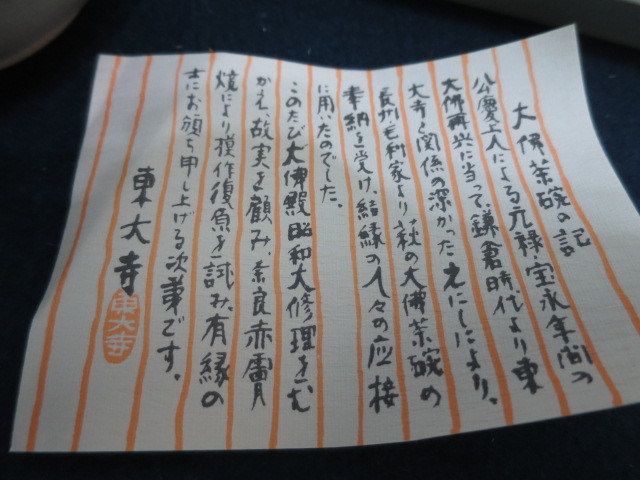 大佛茶碗の記
公慶上人による元禄・宝永年間の
大佛再興に当って、鎌倉時代より東
大寺と関係の深かったえにしにより、
長州毛利家より萩の大佛茶碗の
奉納を受け、結縁の人々の応接
に用いたのでした。
このたび大佛殿昭和大修理をむ
かえ、故実を顧み、奈良赤膚
焼により模作復原を試み、有縁の
士にお頒ち申し上げる次第です。
東大寺
東大寺